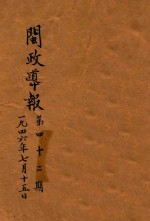 閩政導報
第四十三期
一九四六年七月十五日